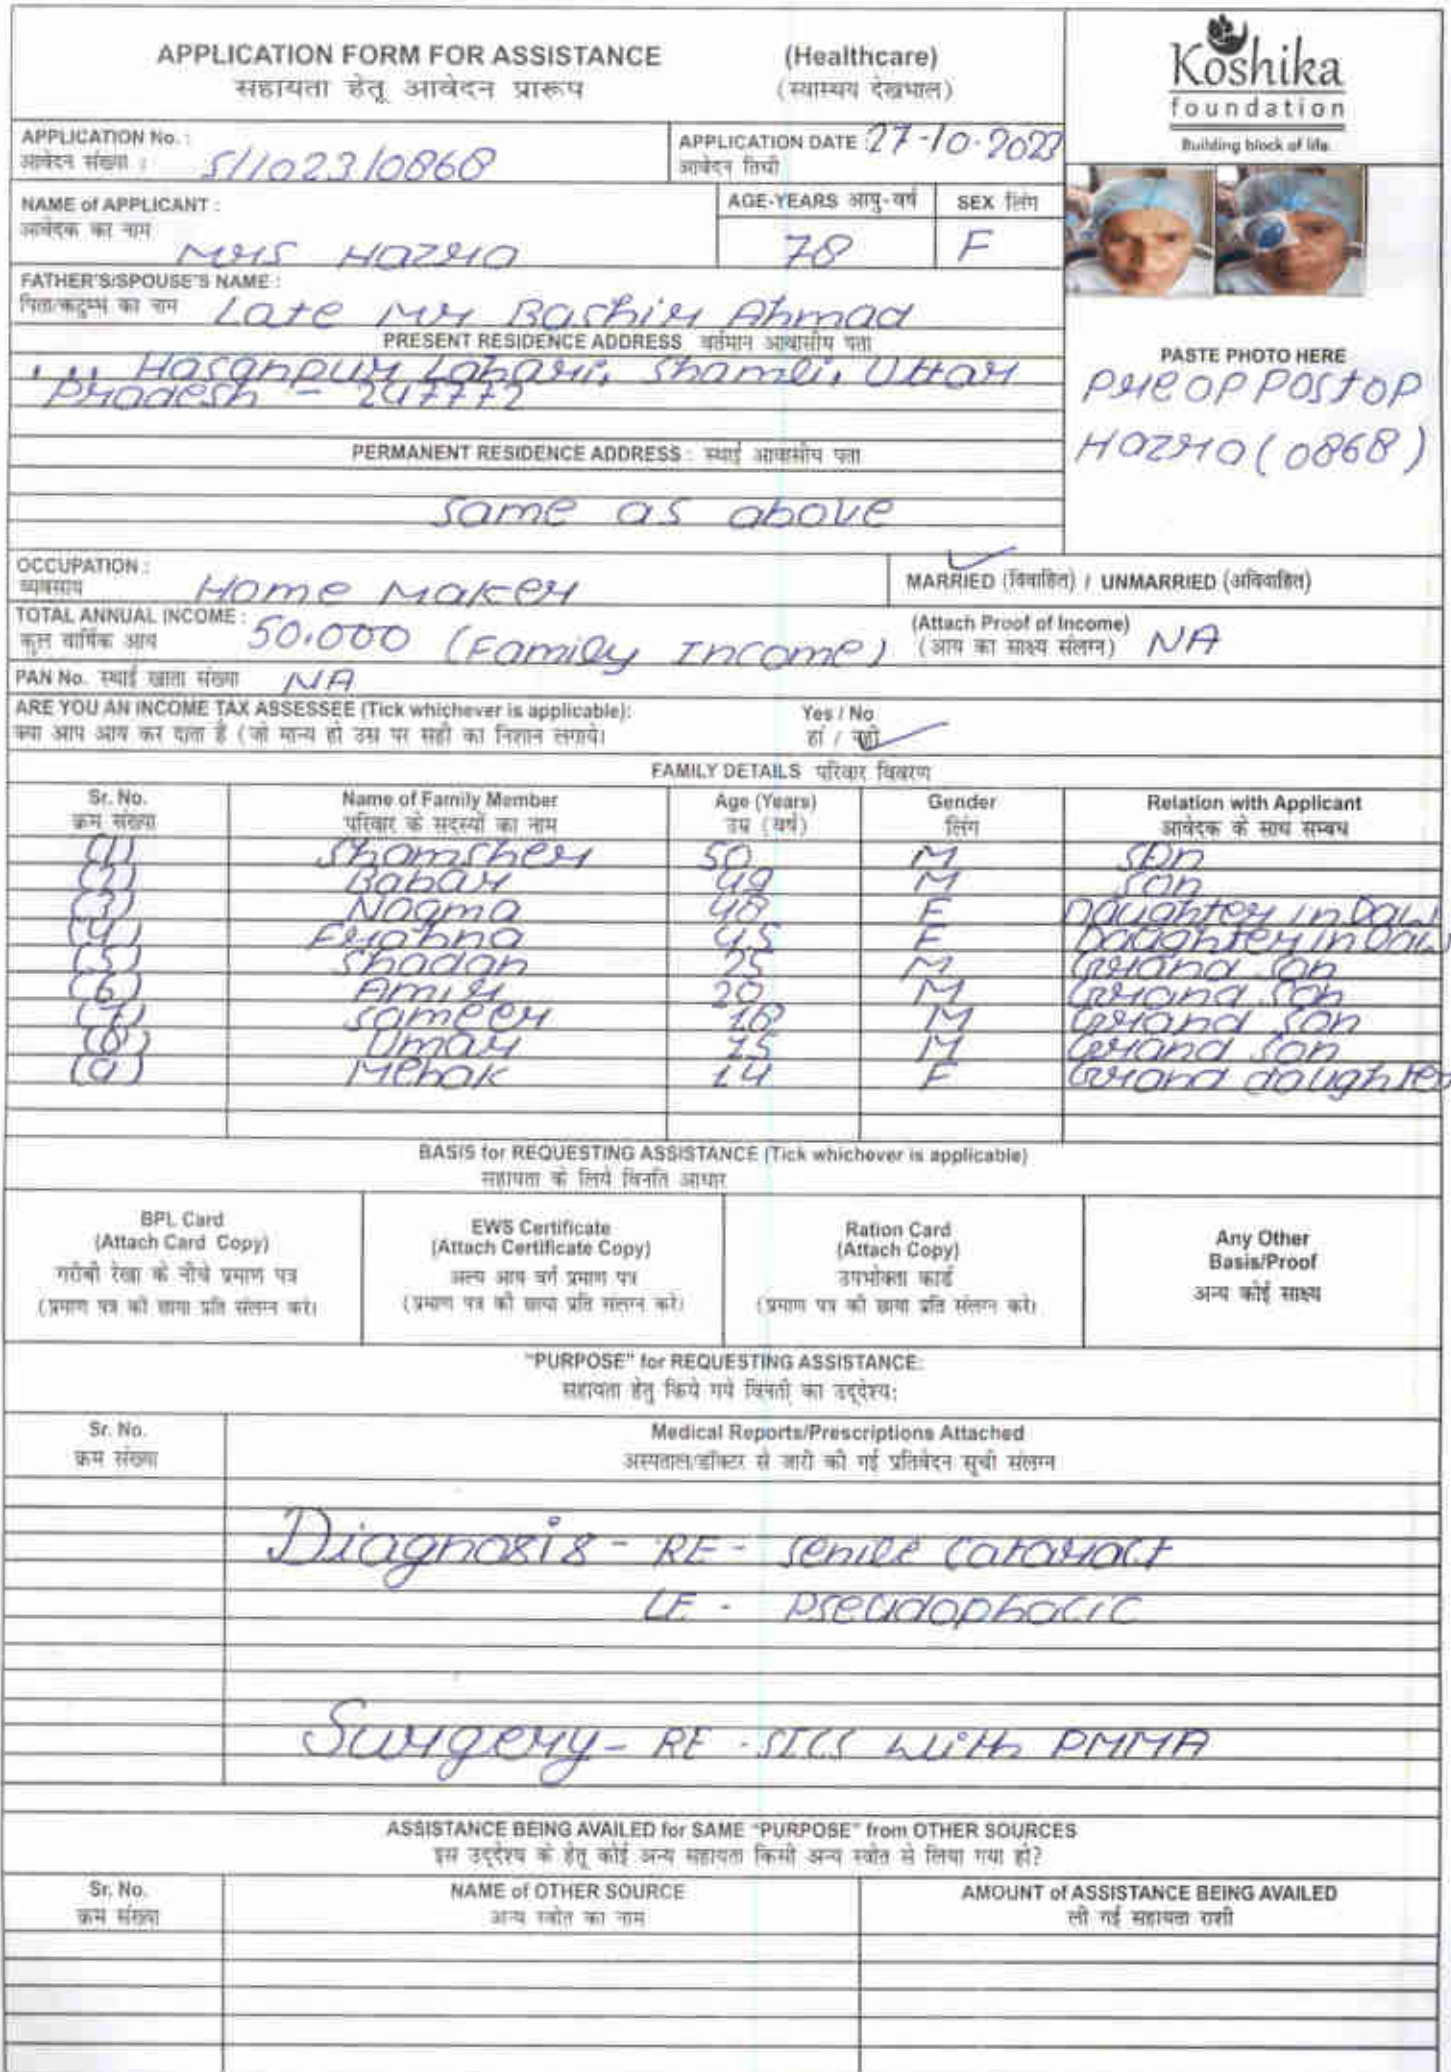 APPLICATION FORM FOR ASSISTANCE (Healthcare)
सहायता हेतू आवेदन प्रारूप (स्वास्थ्य देखभाल)
Koshika
foundation
Building block of life
APPLICATION No. :
आवेदन संख्या : S/1023/0868
APPLICATION DATE : 27-10-2023
आवेदन तिथी
NAME of APPLICANT :
आवेदक का नाम Mrs Hazra
AGE-YEARS आयु-वर्ष 78
SEX लिंग F
FATHER'S/SPOUSE'S NAME :
पिता/कुटुम्ब का नाम Late Mr Bashir Ahmad
PRESENT RESIDENCE ADDRESS वर्तमान आवासीय पता
Hasanpur Lahari, Shamli, Uttar
Pradesh - 247772
PASTE PHOTO HERE
Preop Postop
Hazra (0868)
PERMANENT RESIDENCE ADDRESS : स्थाई आवासीय पता
Same as above
OCCUPATION :
व्यवसाय Home Maker
MARRIED (विवाहित) / UNMARRIED (अविवाहित)
TOTAL ANNUAL INCOME :
कुल वार्षिक आय 50.000 (Family Income)
(Attach Proof of Income)
(आय का साक्ष्य संलग्न) NA
PAN No. स्थाई खाता संख्या NA
ARE YOU AN INCOME TAX ASSESSEE (Tick whichever is applicable): Yes / No
क्या आप आय कर दाता है (जो मान्य हो उस पर सही का निशान लगाये। हां / नही
FAMILY DETAILS परिवार विवरण
Sr. No. Name of Family Member Age (Years) Gender Relation with Applicant
क्रम संख्या परिवार के सदस्यों का नाम उम्र (वर्ष) लिंग आवेदक के साथ सम्बध
(1) Shamsher 50 M Son
(2) Babar 49 M Son
(3) Nagma 48 F Daughter in Law
(4) Frahna 45 F Daughter in Law
(5) Shadan 25 M Grand Son
(6) Amir 20 M Grand Son
(7) Sameer 18 M Grand Son
(8) Umar 15 M Grand Son
(9) Mehak 14 F Grand daughter
BASIS for REQUESTING ASSISTANCE (Tick whichever is applicable)
सहायता के लिये विनति आधार
BPL Card
(Attach Card Copy)
गरीबी रेखा के नीचे प्रमाण पत्र
(प्रमाण पत्र की छाया प्रति संलग्न करे।
EWS Certificate
(Attach Certificate Copy)
अल्प आय वर्ग प्रमाण पत्र
(प्रमाण पत्र की छाया प्रति संलग्न करे।
Ration Card
(Attach Copy)
उपभोक्ता कार्ड
(प्रमाण पत्र की छाया प्रति संलग्न करे।
Any Other
Basis/Proof
अन्य कोई साक्ष्य
"PURPOSE" for REQUESTING ASSISTANCE:
सहायता हेतु किये गये विनती का उद्देश्य:
Sr. No. Medical Reports/Prescriptions Attached
क्रम संख्या अस्पताल/डॉक्टर से जारी की गई प्रतिवेदन सूची संलग्न
Diagnosis - RE - Senile Cataract
LE - Pseudophacic
Surgery - RE - SICS with PMMA
ASSISTANCE BEING AVAILED for SAME "PURPOSE" from OTHER SOURCES
इस उद्देश्य के हेतू कोई अन्य सहायता किसी अन्य स्त्रोत से लिया गया हो?
Sr. No. NAME of OTHER SOURCE AMOUNT of ASSISTANCE BEING AVAILED
क्रम संख्या अन्य स्त्रोत का नाम ली गई सहायता राशी